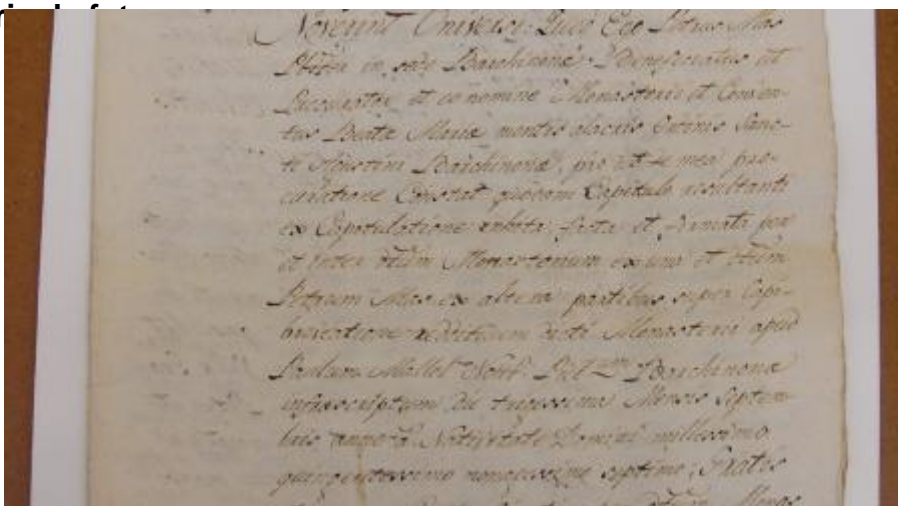 Noverint Universi: Quod Ego Petrus Mas
in sede Barchinonæ Beneficiatus et
et eo nomine Monasterii et Conven-
tus Beatæ Mariæ montis alacris Ordinis Sanc-
ti Agustini Barchinonæ, pro ut de mea pro-
curatione Constat quodam Capitulo resultanti
ex Capitulatione infrâ facta et firmata per
et inter dictum Monasterium ex una et dictum
Petrum Mas ex altera partibus super Capi-
breviatione reddituum dicti Monasterii apud
Paulum Mallol Barchinonæ
infrascriptum die trigesima Mensis Septem-
bris anno â Nativitate Domini millessimo
quingentessimo nonagessimo septimo; Gratis